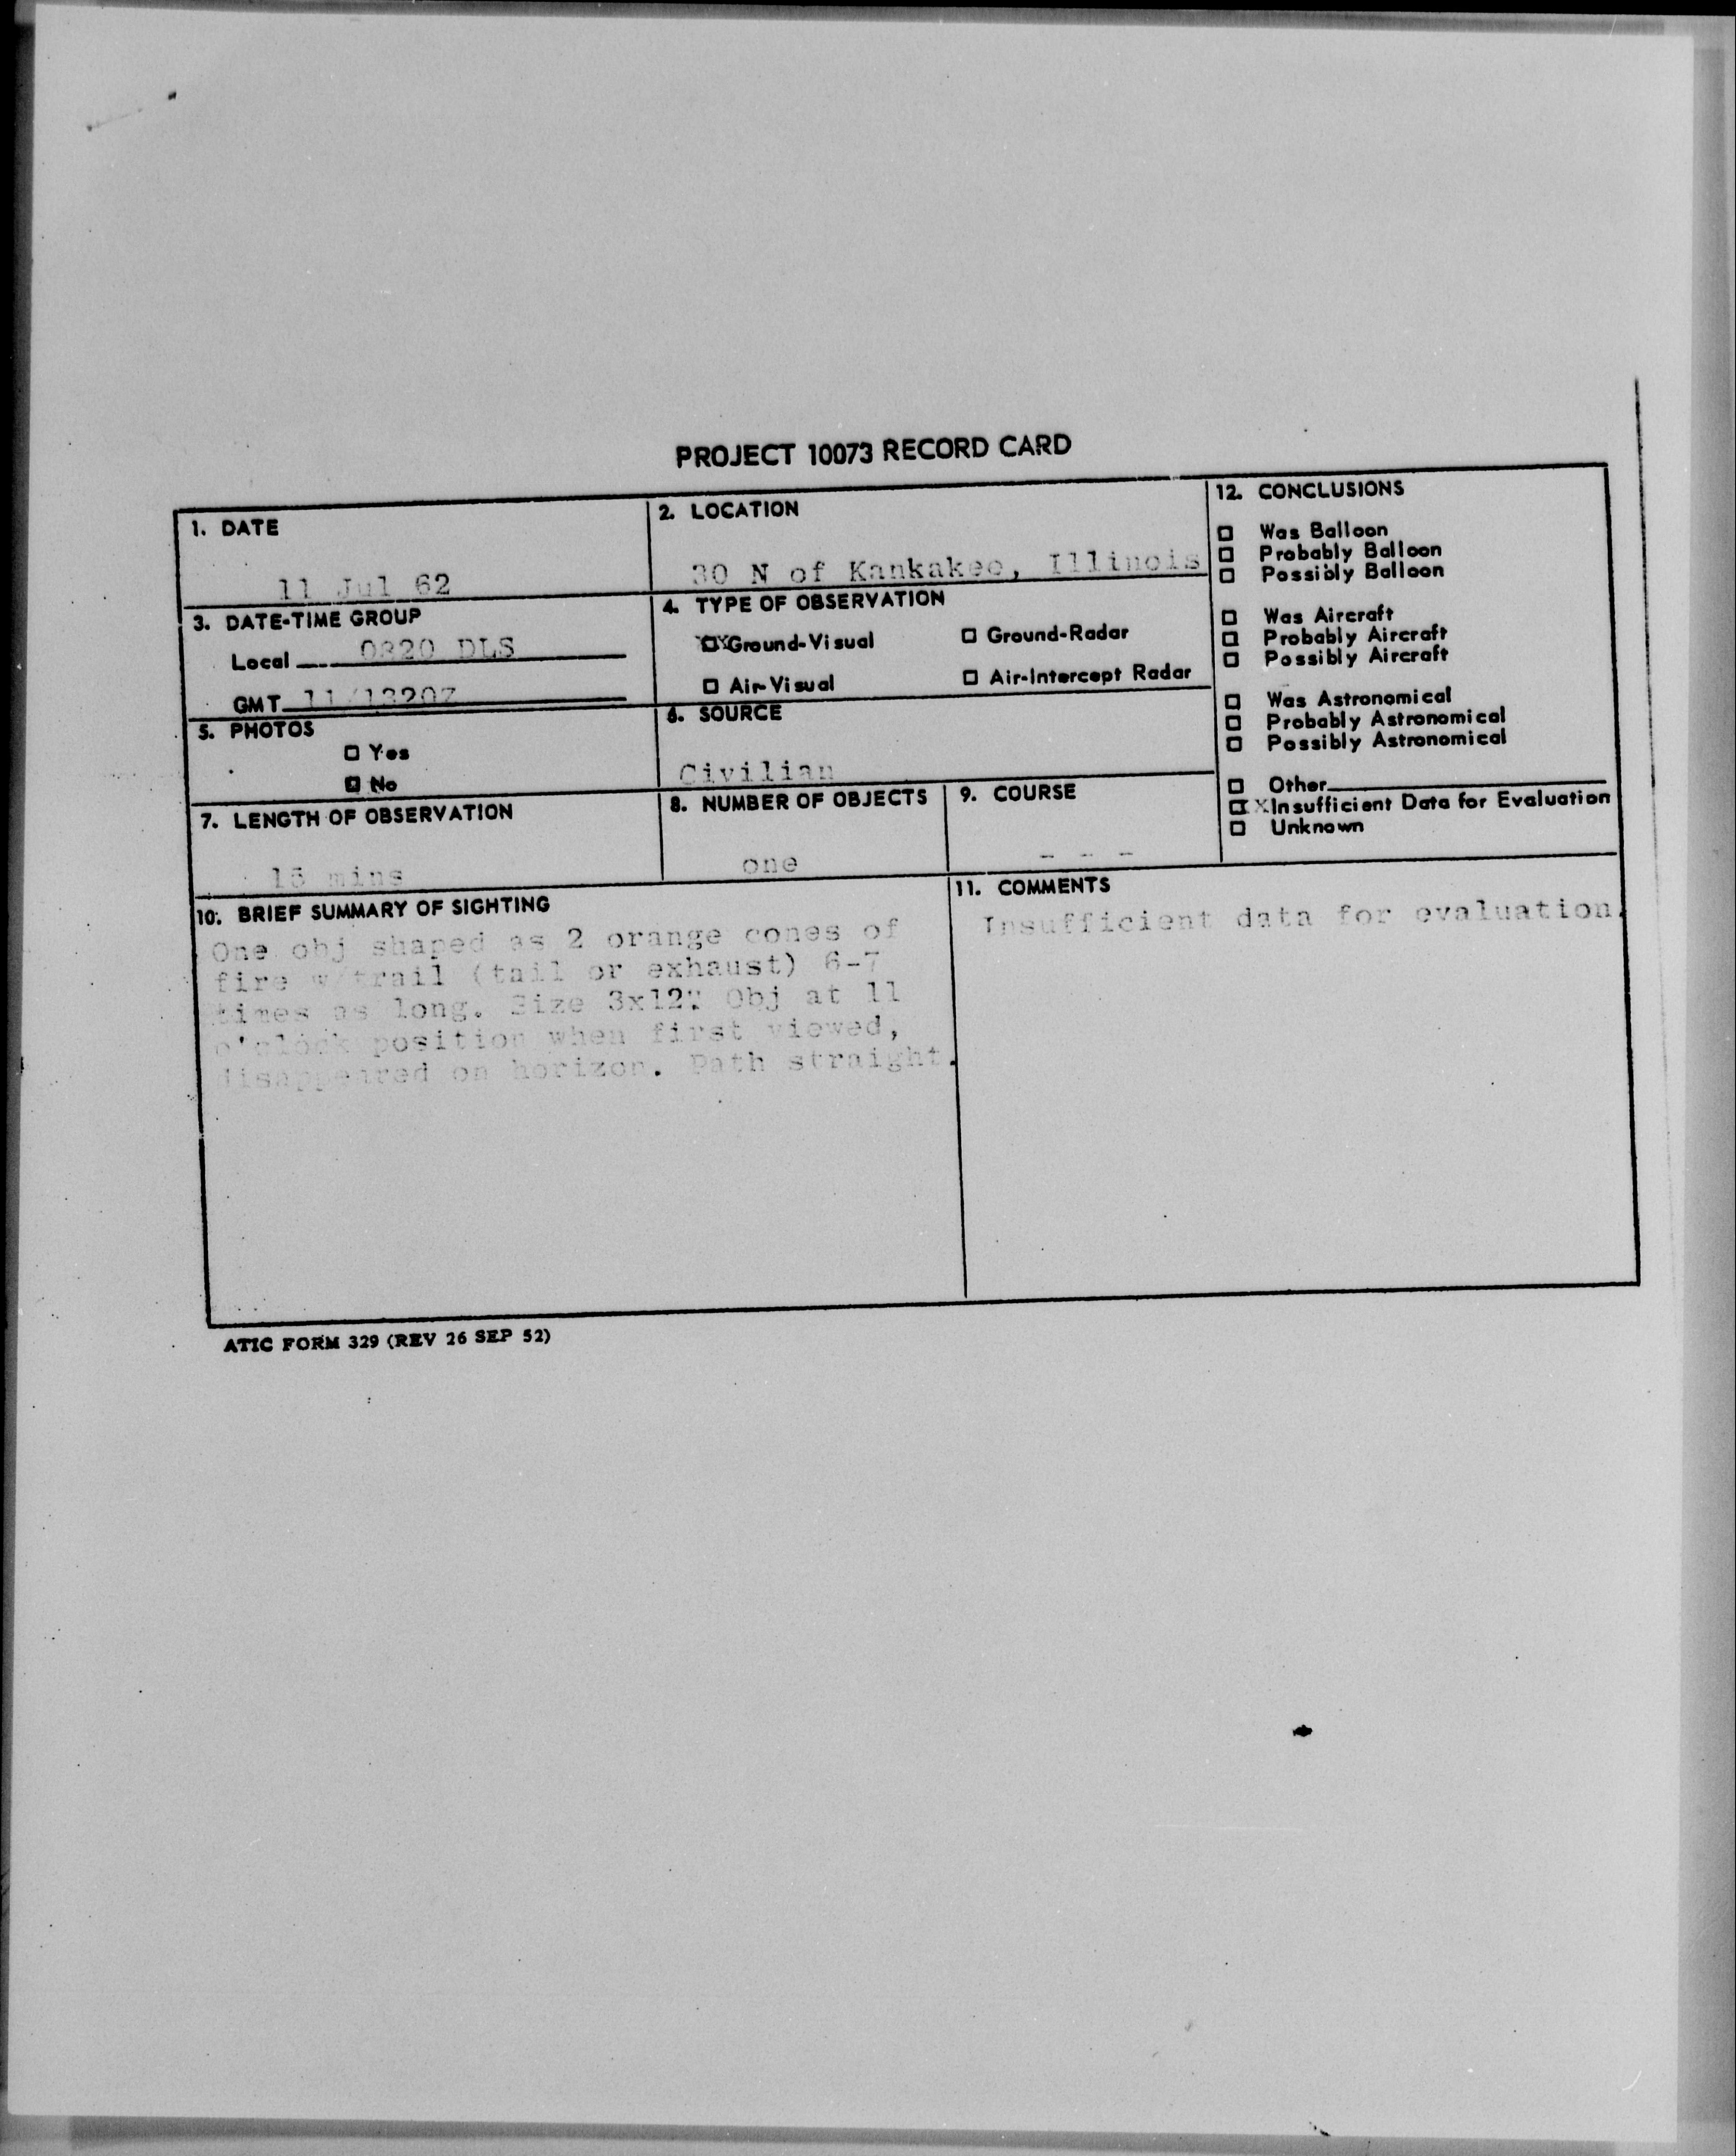 PROJECT 10073 RECORD CARD
1. DATE
11 Jul 62
2. LOCATION
30 N of Kankakee, Illinois
3. DATE-TIME GROUP
Local 0820 DLS
GMT 11/1320Z
4. TYPE OF OBSERVATION
☒ Ground-Visual
☐ Ground-Radar
☐ Air-Visual
☐ Air-Intercept Radar
5. PHOTOS
☐ Yes
☒ No
6. SOURCE
Civilian
7. LENGTH OF OBSERVATION
15 mins
8. NUMBER OF OBJECTS
one
9. COURSE
- - -
10. BRIEF SUMMARY OF SIGHTING
One obj shaped as 2 orange cones of
fire w/trail (tail or exhaust) 6-7
times as long. Size 3x12" Obj at 11
o'clock position when first viewed,
disappeared on horizon. Path straight.
11. COMMENTS
Insufficient data for evaluation.
12. CONCLUSIONS
☐ Was Balloon
☐ Probably Balloon
☐ Possibly Balloon
☐ Was Aircraft
☐ Probably Aircraft
☐ Possibly Aircraft
☐ Was Astronomical
☐ Probably Astronomical
☐ Possibly Astronomical
☐ Other
☒ Insufficient Data for Evaluation
☐ Unknown
ATIC FORM 329 (REV 26 SEP 52)